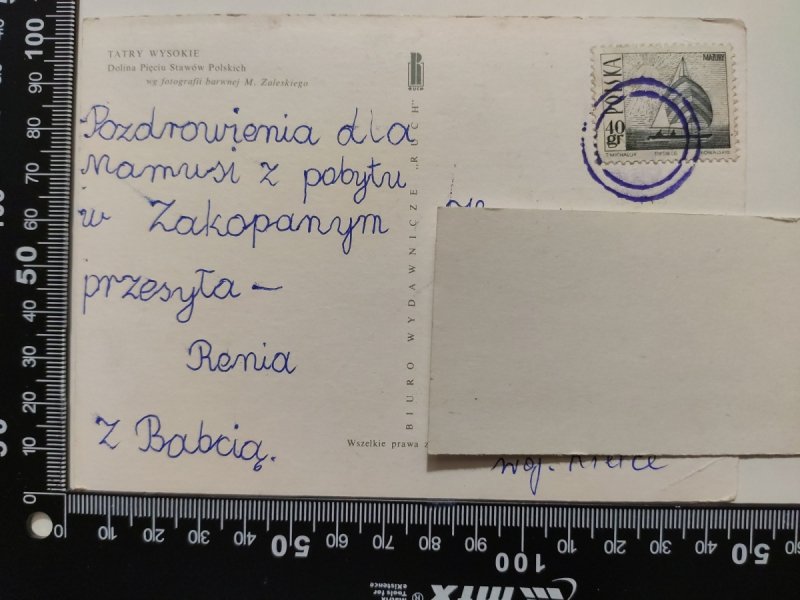 TATRY WYSOKIE
Dolina Pięciu Stawów Polskich
wg fotografii barwnej M. Zaleskiego
RUCH
Pozdrowienia dla
Mamusi z pobytu
w Zakopanym
przesyła –
Renia
z Babcią.
BIURO WYDAWNICZE „RUCH"
Wszelkie prawa z
POLSKA
40 gr
woj. Kielce
100
90
80
70
60
50
40
30
20
10
0
0
10
20
30
40
50
60
70
80
90
100
10
20
30
40
50
mtx
Matrix
Tools for
eXistence